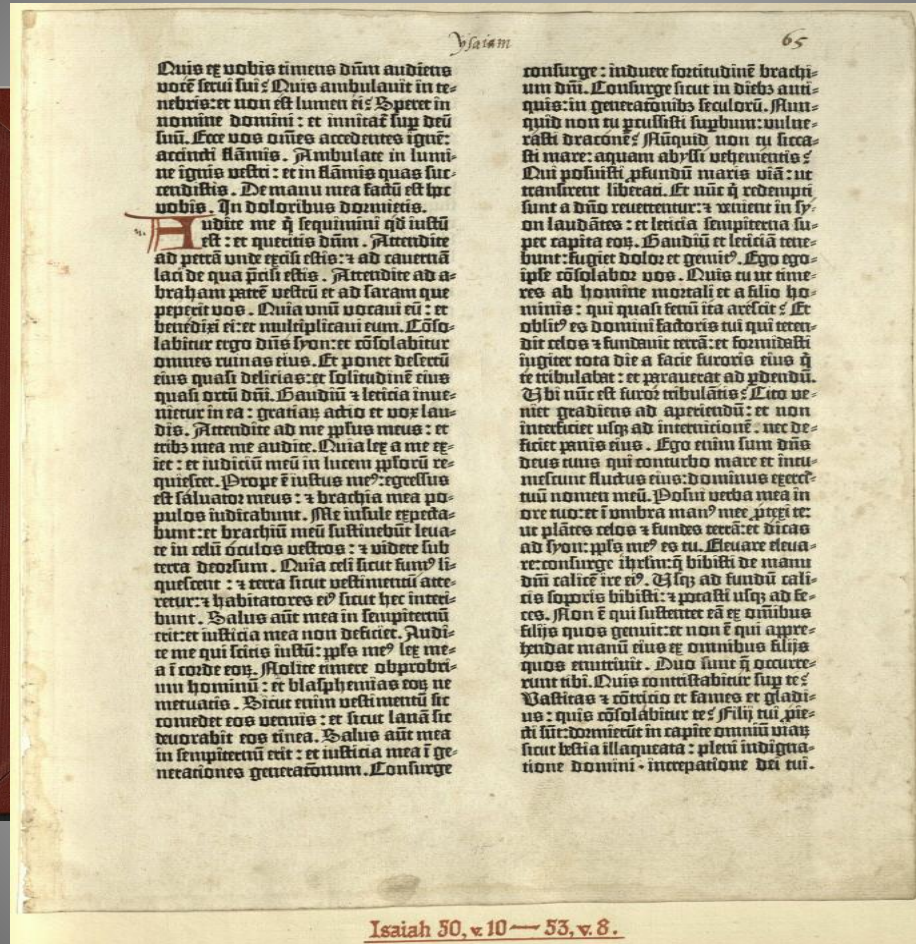 ysaiam
65
Quis ex vobis timens dñm audiens
vocẽ serui sui? Quis ambulauit in te-
nebris: et non est lumen ei? Speret in
nomine domini: et innitat᷑ sup deũ
suũ. Ecce vos om̃es accedentes ignẽ:
accincti flãmis. Ambulate in lumi-
ne ignis vestri: et in flãmis quas suc-
cendistis. De manu mea factũ est hoc
vobis. In doloribus dormietis.
Audite me q̃ sequimini qd̃ iustũ
est: et queritis dñm. Attendite
ad petrã vnde excisi estis: ⁊ ad cauernã
laci de qua p̃cisi estis. Attendite ad a-
braham patrẽ vestrũ et ad saram que
peperit vos. Quia vnũ vocaui eũ: et
benedixi ei: et multiplicaui eum. Cõso-
labitur ergo dñs syon: et cõsolabitur
omnes ruinas eius. Et ponet desertũ
eius quasi delicias: et solitudinẽ eius
quasi ortũ dñi. Gaudiũ ⁊ leticia inue-
nietur in ea: gratiaꝝ actio et vox lau-
dis. Attendite ad me ppl̃us meus: et
tribꝫ mea me audite. Quia lex a me ex-
iet: et iudiciũ meũ in lucem pplo̱rũ re-
quiescet. Prope ẽ iustus meꝰ: egressus
est saluator meus: ⁊ brachia mea po-
pulos iudicabunt. Me insule expecta-
bunt: et brachiũ meũ sustinebũt. leua-
te in celũ oculos vestros: ⁊ videte sub
terra deorsum. Quia celi sicut fumꝰ li-
quescent: ⁊ terra sicut vestimentũ atte-
retur: ⁊ habitatores eiꝰ sicut hec interi-
bunt. Salus aũt mea in sempiternũ
erit: et iusticia mea non deficiet. Audi-
te me qui scitis iustũ: ppl̃s meꝰ lex me-
a ĩ corde eoꝝ. Nolite timere obprobri-
um hominũ: et blasphemias eoꝝ ne
metuatis. Sicut enim vestimentũ sic
comedet eos vermis: et sicut lanã sic
deuorabit eos tinea. Salus aũt mea
in sempiternũ erit: et iusticia mea ĩ ge-
nerationes generatõnum. Consurge
consurge: induere fortitudinẽ brachi-
um dñi. Consurge sicut in diebꝫ anti-
quis: in generatõnibꝫ seculorũ. Nun-
quid non tu ꝑcussisti supbum: vulne-
rasti draconẽ? Nũquid non tu sicca-
sti mare: aquam abyssi vehementis?
Qui posuisti ꝓfundũ maris viã: ut
transirent liberati. Et nũc q̃ redempti
sunt a dño reuertentur: ⁊ venient in sy-
on laudãtes: et leticia sempiterna su-
per capita eoꝝ. Gaudiũ et leticiã tene-
bunt: fugiet dolor et gemitꝰ. Ego ego-
ipse cõsolabor vos. Quis tu ut time-
res ab homine mortali et a filio ho-
minis: qui quasi fenũ ita arescit? Et
oblitꝰ es domini factoris tui qui teten-
dit celos ⁊ fundauit terrã: et formidasti
iugiter tota die a facie furoris eius q̃
te tribulabat: et parauerat ad ꝑdendũ.
Ubi nũc est furor tribulãtis? Cito ve-
niet gradiens ad aperiendũ: et non
interficiet usqꝫ ad internicionẽ. nec de-
ficiet panis eius. Ego enim sum dñs
deus tuus qui conturbo mare et intu-
mescunt fluctus eius: dominus exerci-
tuũ nomen meũ. Posui verba mea in
ore tuo: et ĩ vmbra manꝰ mee ꝓtexi te:
ut plãtes celos ⁊ fundes terrã: et dicas
ad syon: ppl̃s meꝰ es tu. Eleuare eleua-
re: consurge ihrl̃m: q̃ bibisti de manu
dñi calicẽ ire eiꝰ. Usqꝫ ad fundũ cali-
cis soporis bibisti: ⁊ potasti usqꝫ ad fe-
ces. Non ẽ qui sustentet eã ex om̃ibus
filijs quos genuit: et non ẽ qui appre-
hendat manũ eius ex omnibus filijs
quos enutriuit. Duo sunt q̃ occurre-
runt tibi. Quis contristabitur sup te?
Vastitas ⁊ cõtricio et fames et gladi-
us: quis cõsolabitur te? Filij tui ꝓie-
cti sũt: dormierũt in capite omniũ viaꝝ
sicut bestia illaqueata: pleni indigna-
tione domini · increpatione dei tui.
Isaiah 50, v. 10 — 53, v. 8.